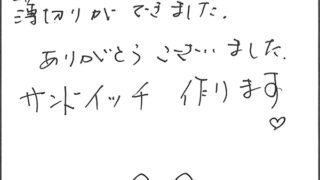 薄切りができました.
ありがとうございました.
サンドイッチ 作ります♡